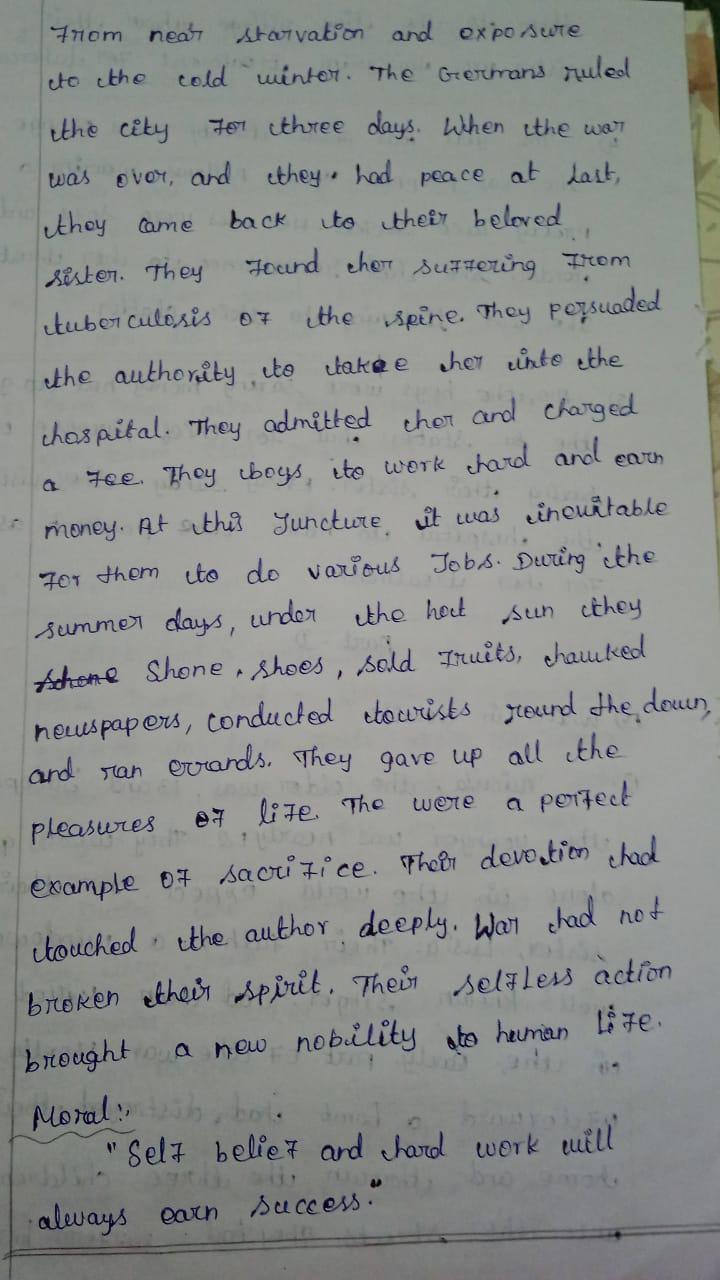 From near starvation and exposure
to the cold winter. The Germans ruled
the city for three days. When the war
was over, and they had peace at last,
they came back to their beloved
sister. They found her suffering from
tuberculosis of the spine. They persuaded
the authority to take her into the
hospital. They admitted her and charged
a fee. They boys, to work hard and earn
money. At this juncture, it was inevitable
for them to do various Jobs. During the
summer days, under the hot sun they
Shone, shoes, sold fruits, hawked
newspapers, conducted tourists round the down,
and ran errands. They gave up all the
pleasures of life. The were a perfect
example of sacrifice. Their devotion had
touched the author deeply. War had not
broken their spirit. Their selfless action
brought a new nobility to human life.
Moral:
"Self belief and hard work will
always earn success."